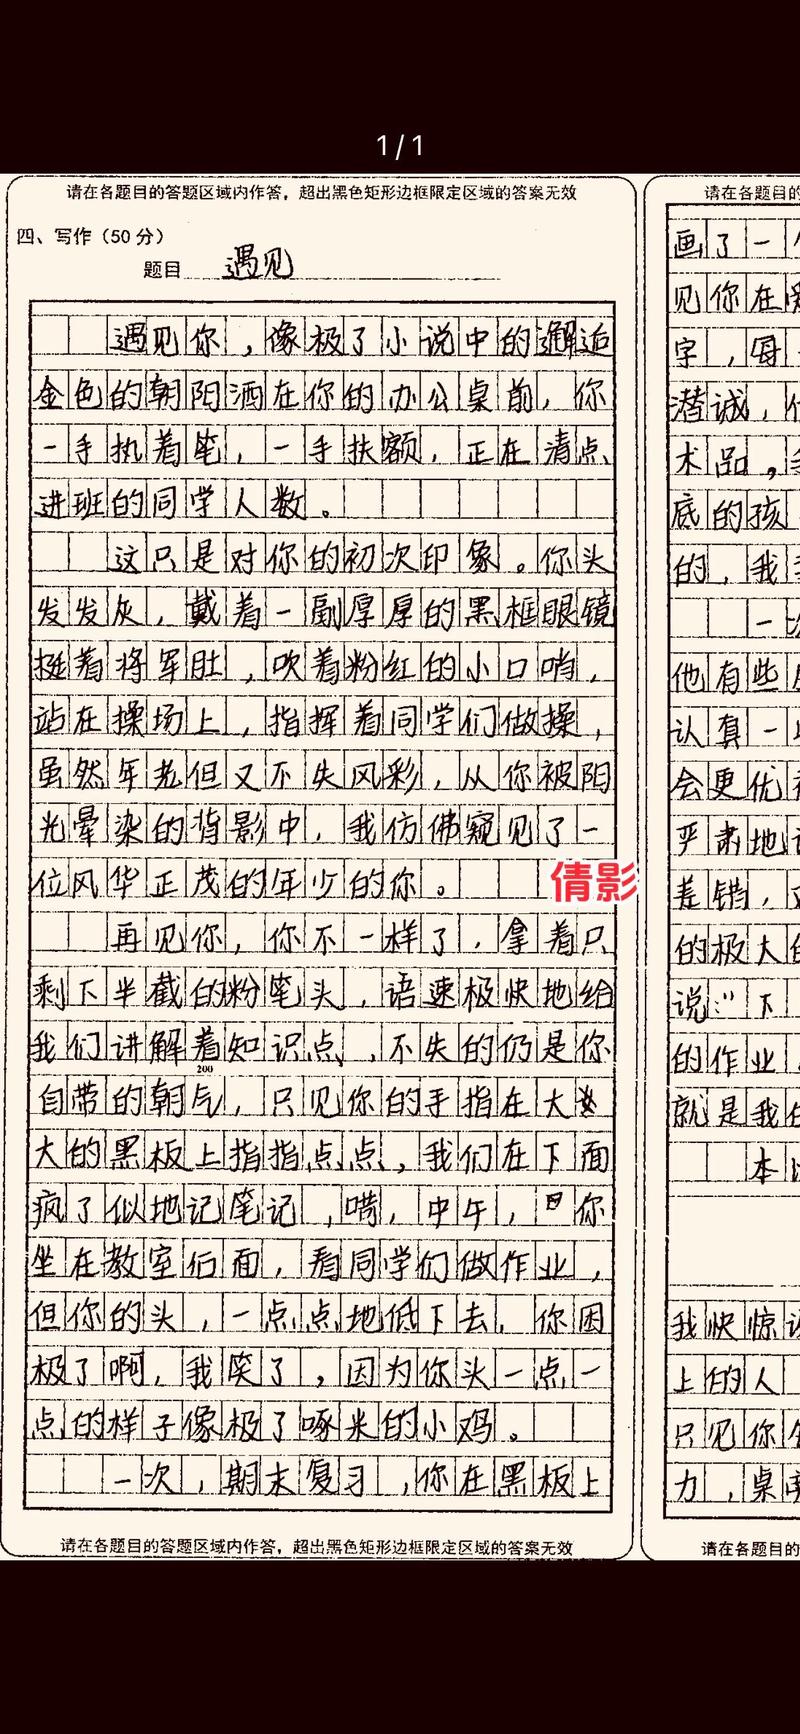 1/1
请在各题目的答题区域内作答，超出黑色矩形边框限定区域的答案无效
四、写作（50分）
题目 遇见
遇见你，像极了小说中的邂逅
金色的朝阳洒在你的办公桌前，你
一手执着笔，一手扶额，正在清点
进班的同学人数。
这只是对你的初次印象。你头
发发灰，戴着一副厚厚的黑框眼镜
挺着将军肚，吹着粉红的小口哨，
站在操场上，指挥着同学们做操，
虽然年老但又不失风彩，从你被阳
光晕染的背影中，我仿佛窥见了一
位风华正茂的年少的你。
倩影
再见你，你不一样了，拿着只
剩下半截的粉笔头，语速极快地给
我们讲解着知识点，不失的仍是你
200
自带的朝气，只见你的手指在大
大的黑板上指指点点，我们在下面
疯了似地记笔记，嗬，中午，你
坐在教室后面，看同学们做作业，
但你的头，一点点地低下去，你困
极了啊，我笑了，因为你头一点一
点的样子像极了啄米的小鸡。
一次，期末复习，你在黑板上
请在各题目的答题区域内作答，超出黑色矩形边框限定区域的答案无效
请在各题目的
画了一个
见你在
字，每
潜诚，
术品，
底的孩
的，我
一次
他有些
认真一
会更优
严肃地
差错，
的极大
说："下
的作业
就是我
本
我快惊
上的人
只见你
力，桌
请在各题目的